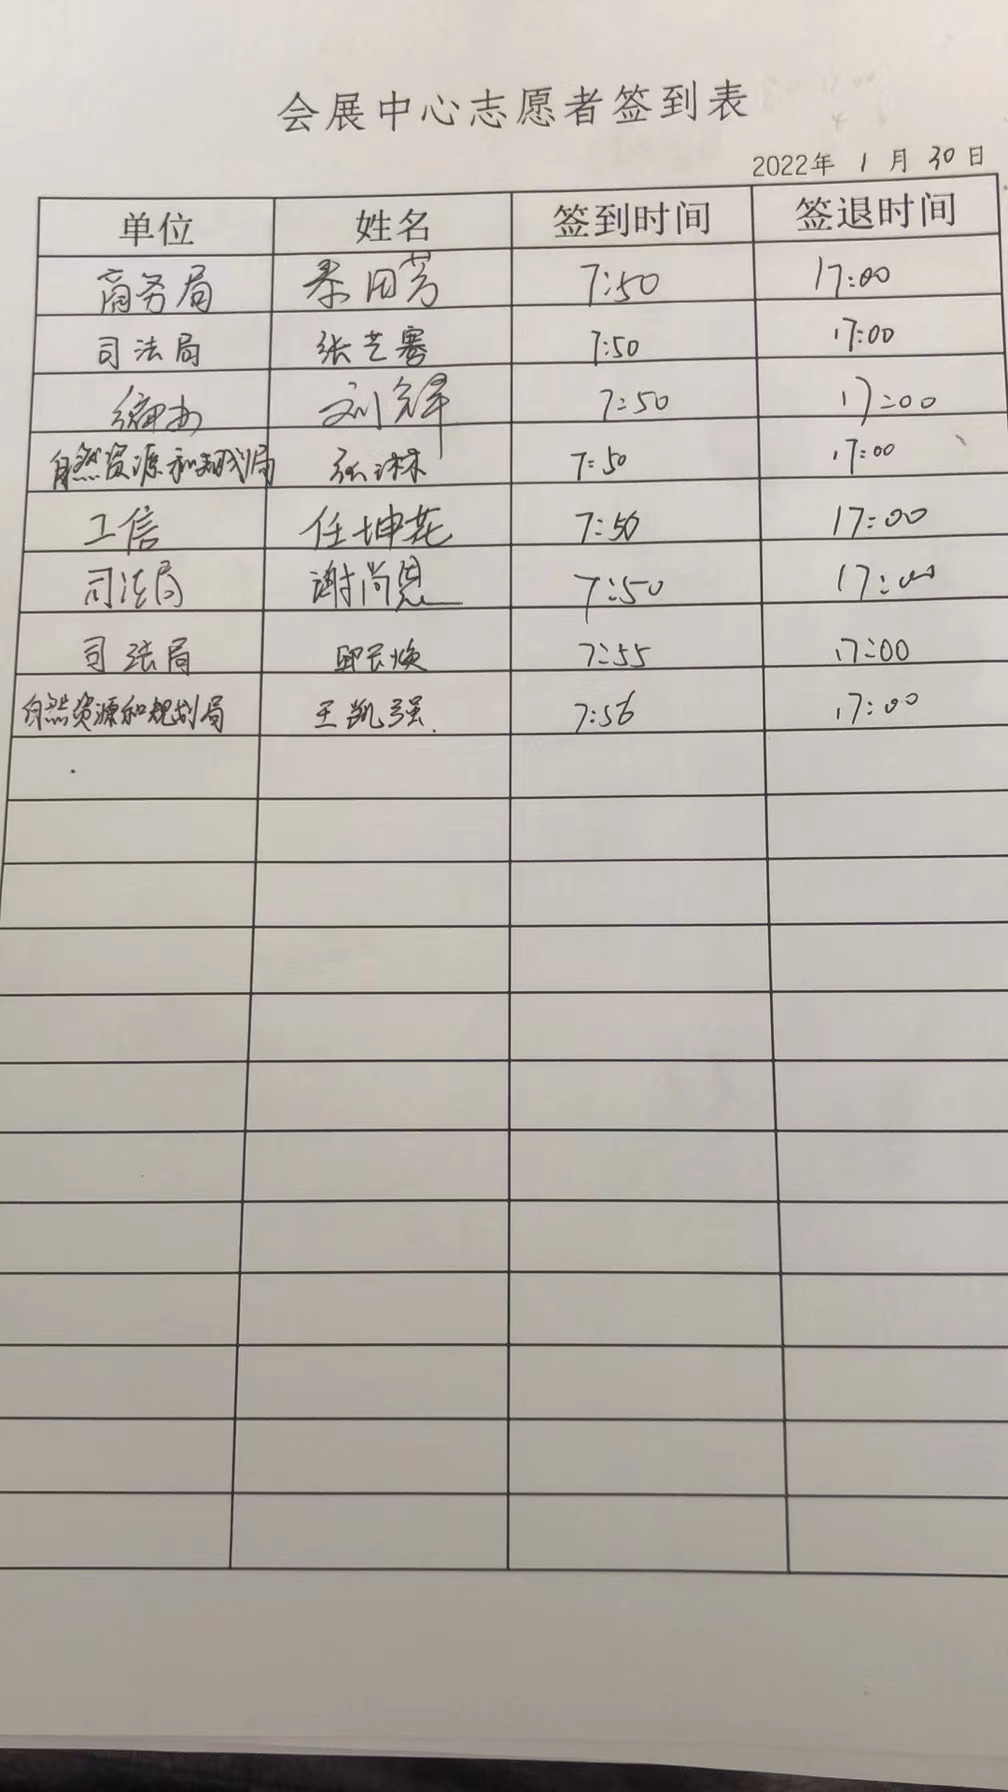 会展中心志愿者签到表
2022年 1 月 30 日
单位 姓名 签到时间 签退时间
商务局 秦田芳 7:50 17:00
司法局 张艺骞 7:50 17:00
编办 刘泽 7:50 17:00
自然资源和规划局 张琳 7:50 17:00
工信 任坤花 7:50 17:00
司法局 谢尚恩 7:50 17:00
司法局 7:55 17:00
自然资源和规划局 王凯强 7:56 17:00